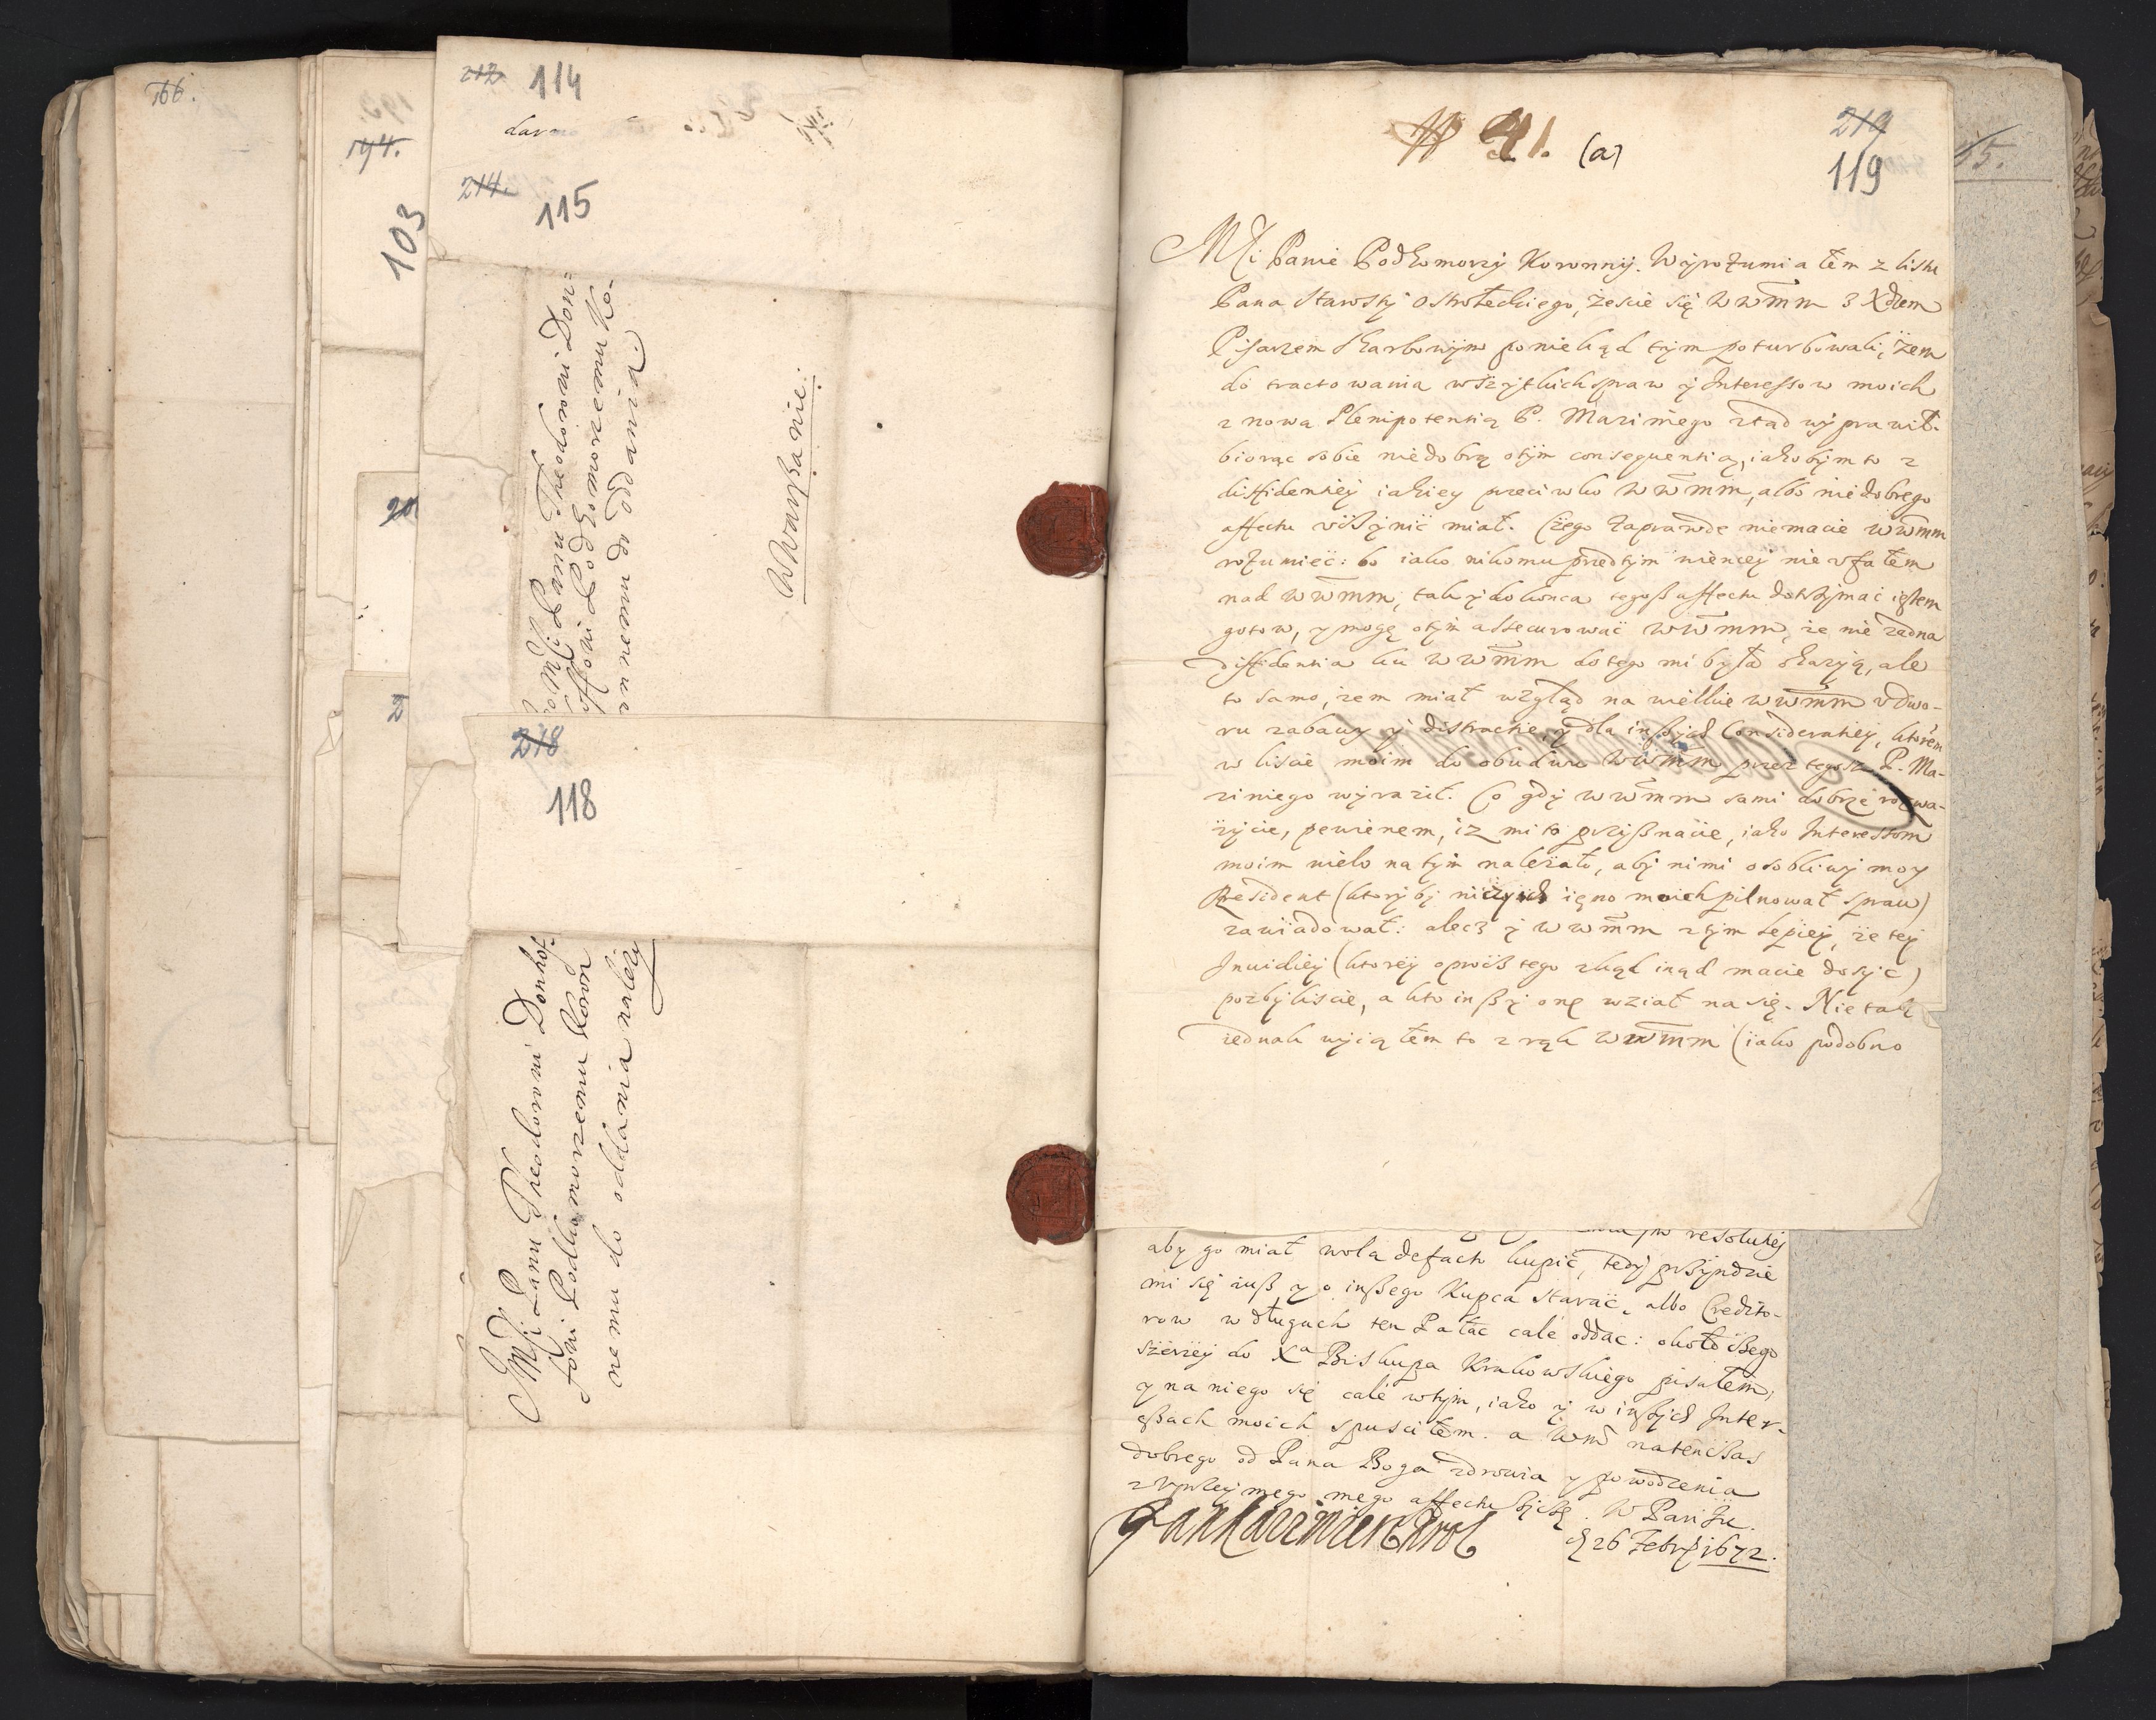 166.
194.
103
20
2
212 114
darmo
214. 115
Mći Panu Theodorowi Dön=
offowi Podkomorzemu Ko-
ronnemu do oddania.
w Warszawie.
218
118
JMći Panu Theodorowi Donhof-
fowi Podkomorzemu Koron
nemu do oddania należy
41. (a)
219
119
65.
Mći Panie Podkomorzy Koronny. Wyrozumiałem z listu
Pana Starosty Ostrołeckiego, żeście się WWmm z Xdzem
Pisarzem Skarbowym poniekąd tym poturbowali, żem
do tractowania wszytkich spraw y Interessow moich
z nową Plenipotentią P. Mariniego ztąd wyprawił.
biorąc sobie niedobrą o tym consequentią, iakobym to z
diffidentiey iakiey przeciwko WWmm, albo niedobrego
affectu uczynić miał. Czego zaprawdę niemacie WWmm
rozumieć: bo iako nikomu przedtym więcey nie ufałem
nad WWmm, tak y do końca tegoß affectu dotrzymać iestem
gotow, y mogę o tym assecurować WWmm, że nie żadna
diffidentia ku WWmm do tego mi była okazyą, ale
to samo, żem miał wzgląd na wielkie WWmm u Dwo-
ru zabawy y distractie, y dla inßych Consideratiey, ktorem
w liście moim do obudwu WWmm przez tegosz P. Ma-
riniego wyraził. Co gdy WWmm sami dobrze rozwa-
życie, pewienem, iż mi to przyßnacie, iako Interessom
moim wielo na tym należało, aby nimi osobliwy moy
Resident (ktoryby niczyich ięno moich pilnował spraw)
zawiadował: alecz y WWmm z tym lepiey, że tey
Invidiey (ktorey oprocz tego zkąd inąd macie dosyć)
pozbyliście, a kto inßy onę wziął na się. Nie tak
iednak wyiąłem to z rąk WWmm (iako podobno
resolutiey
aby go miał wola defacto kupić, tedy przyydzie
mi się iuß y o inßego Kupca starać, albo Credito-
row w długach ten Pałac cale oddac: około czego
szerzey do Xa Biskupa Krakowskiego pisałem,
y na niego się cale wtym, iako y w inßych Inter-
eßach moich spuściłem. a Wm natenczas
dobrego od Pana Boga zdrowia y powodzenia
z uprzeymego mego affectu życzę. W Pariżu.
d 26 Febr. 1672.
Jan Kazimierz Krol